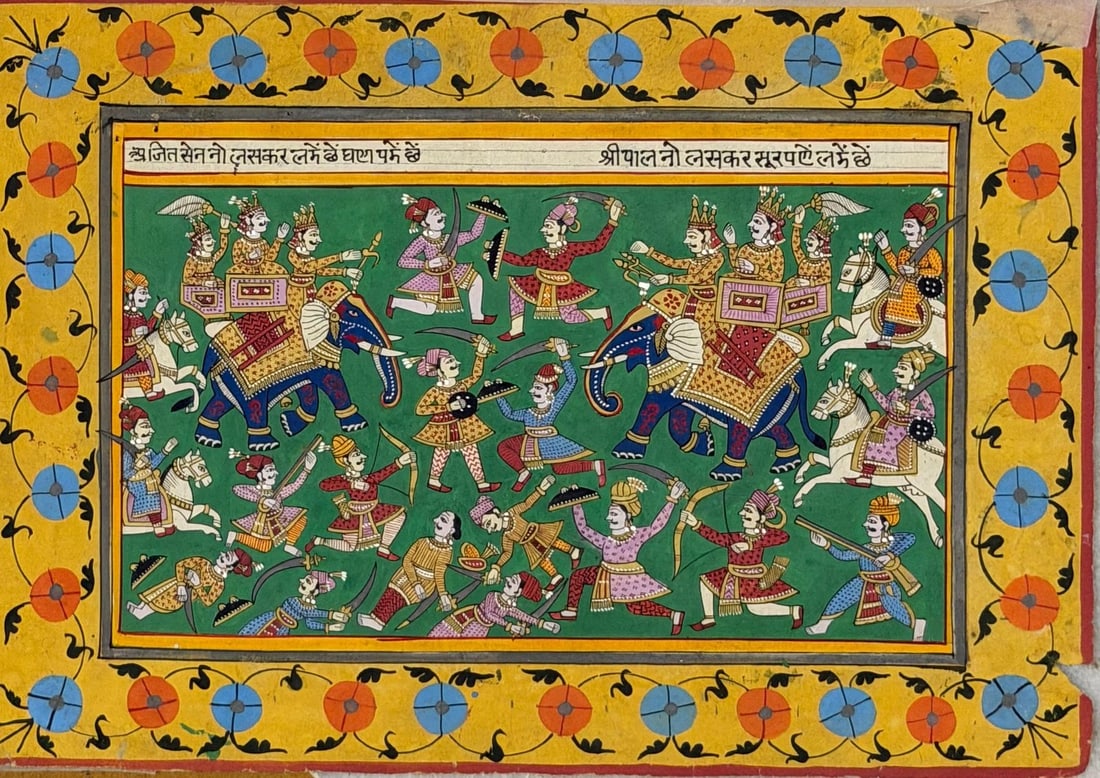 अजितसेन नो लसकर लडें छें घाण पडें छें
श्रीपाल नो लसकर सूरपणें लडें छें